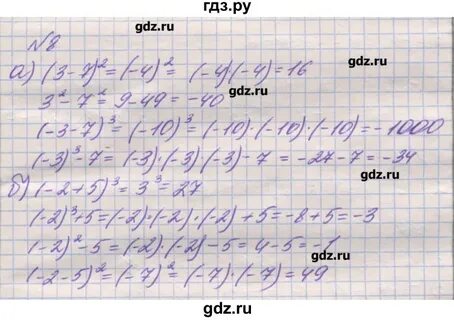 gdz.ru gdz.ru
№8
а) (3-7)² = (-4)² = (-4)(-4) = 16
3² - 7² = 9 - 49 = -40
gdz.ru gdz.ru
(-3-7)³ = (-10)³ = (-10)·(-10)·(-10) = -1000
(-3)³ - 7 = (-3)·(-3)·(-3) - 7 = -27 - 7 = -34
б) (-2+5)³ = 3³ = 27
gdz.ru gdz.ru
(-2)³ + 5 = (-2)·(-2)·(-2) + 5 = -8 + 5 = -3
(-2)² - 5 = (-2)·(-2) - 5 = 4 - 5 = -1
(-2-5)² = (-7)² = (-7)·(-7) = 49
gdz.ru gdz.ru